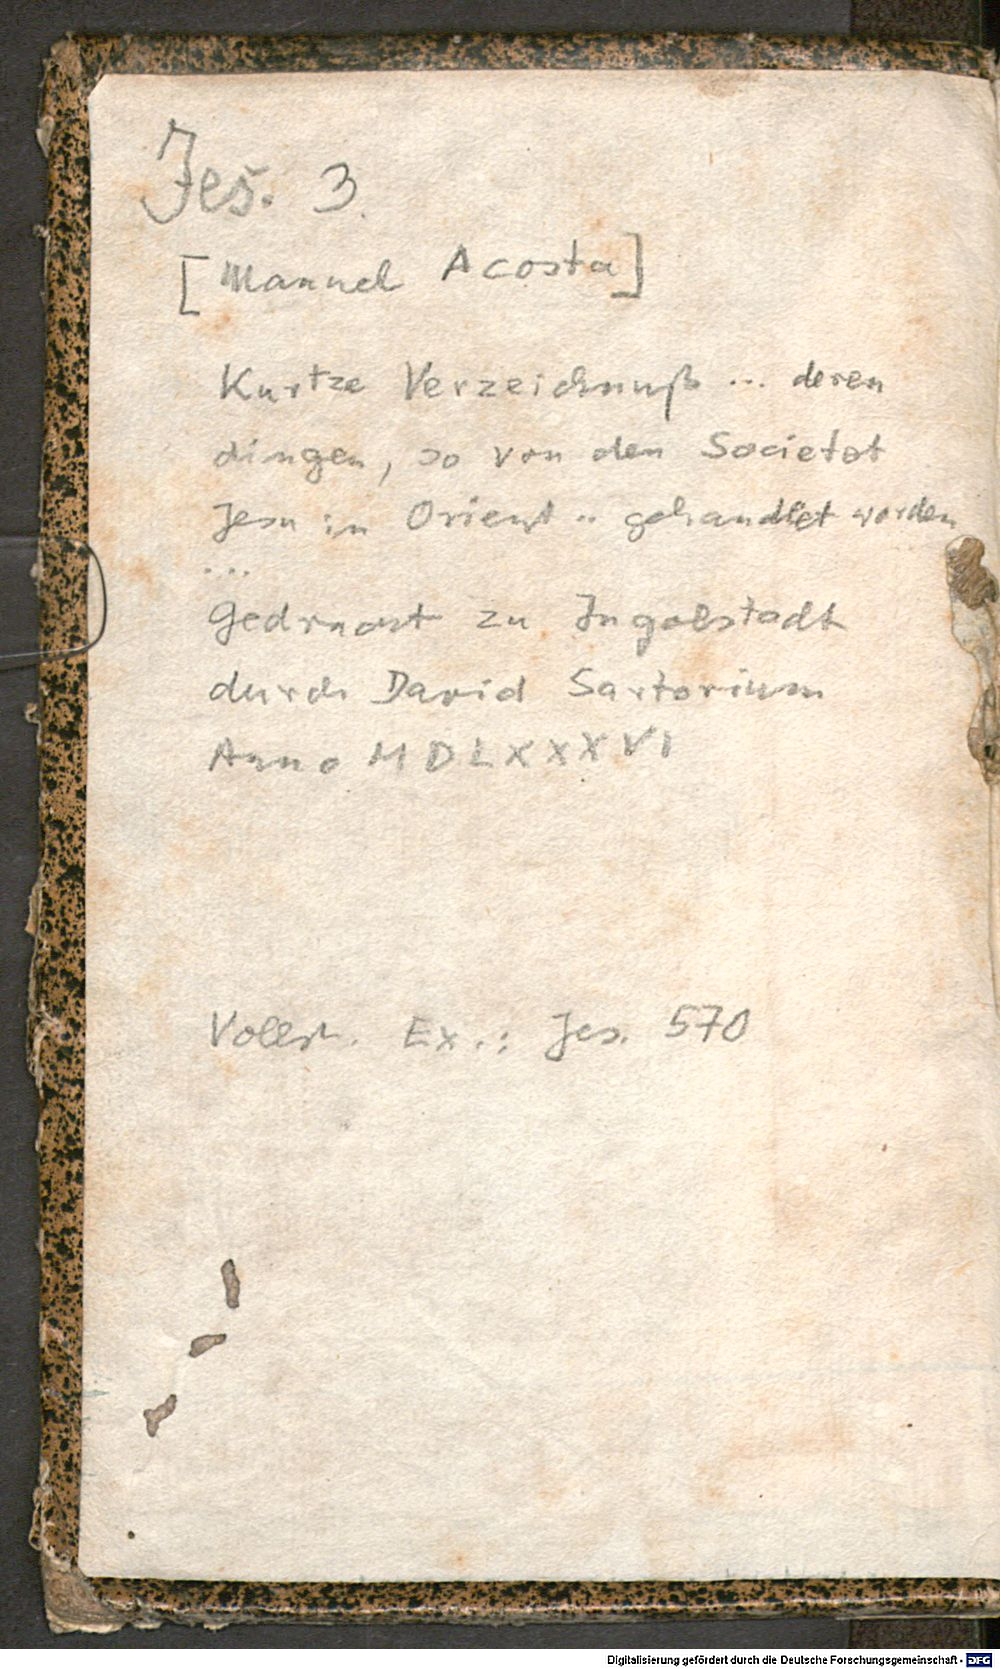 Jes. 3.
[Manuel Acosta]
Kurtze Verzeichnuß ... deren
dingen, so von den Societet
Jesu in Orient .. gehandlet worden
...
Gedruckt zu Ingolstadt
durch David Sartorium
Anno MDLXXXVI
Vollst. Ex.: Jes. 570
Digitalisierung gefördert durch die Deutsche Forschungsgemeinschaft - DFG